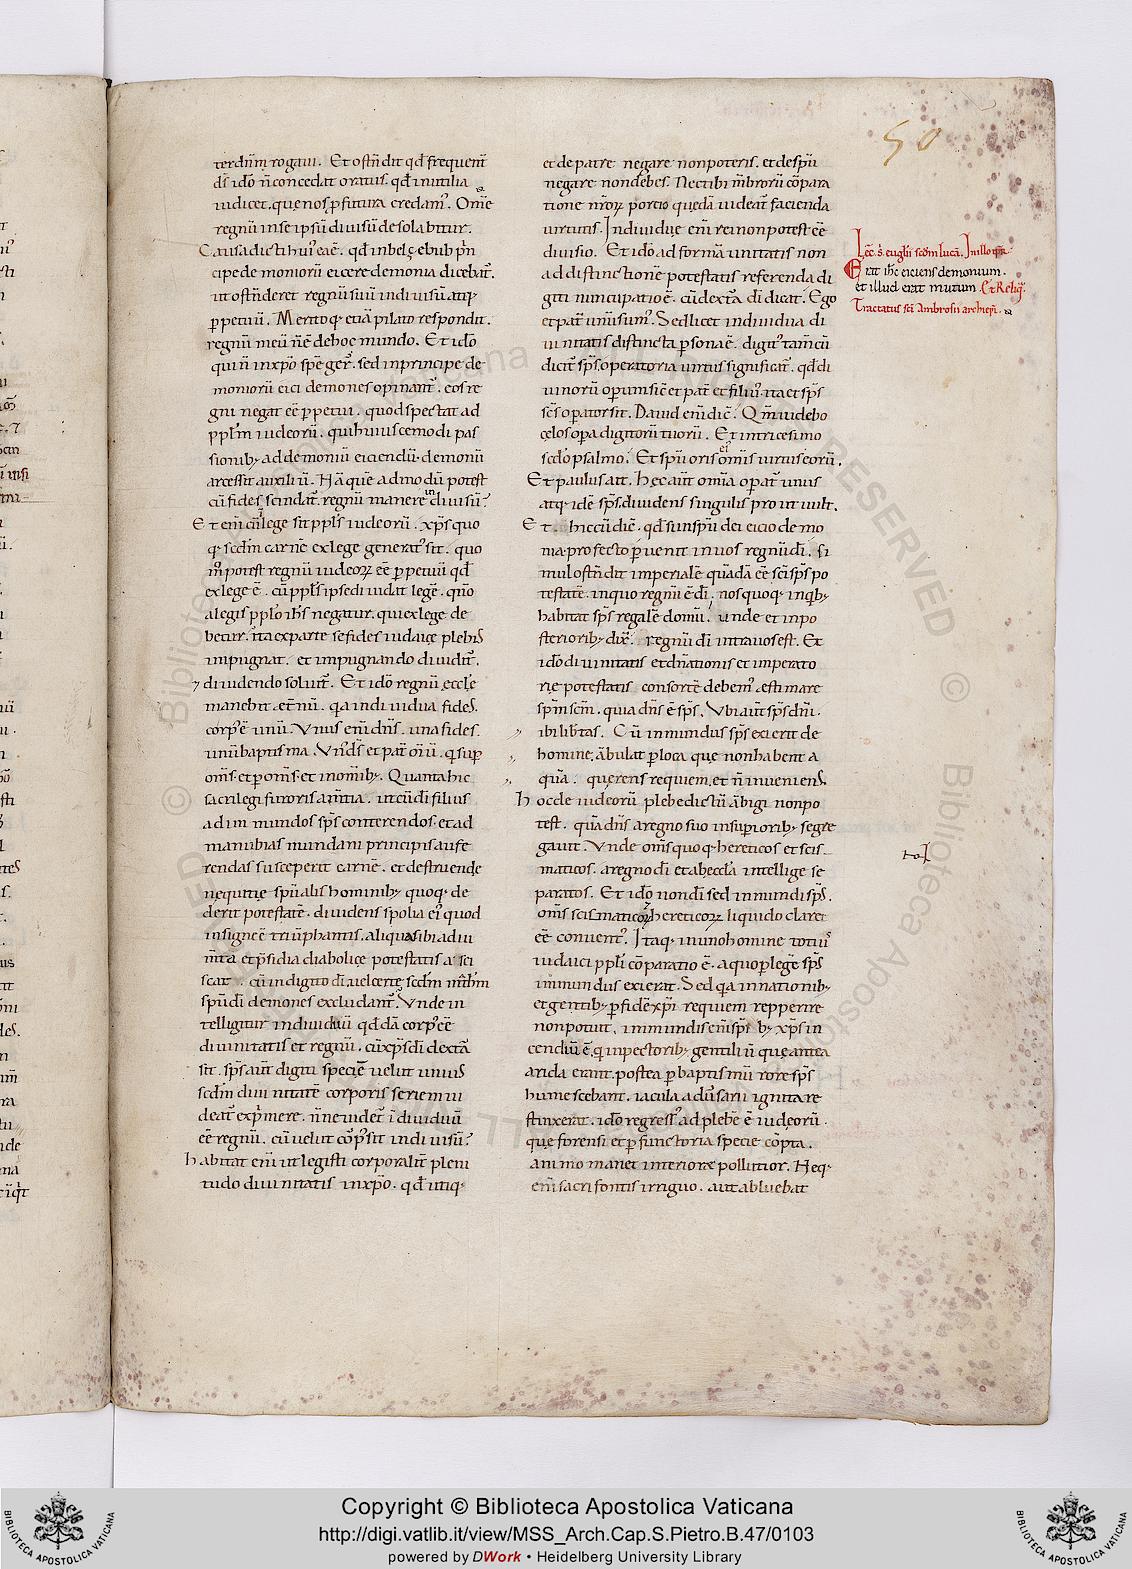 50
terdnm̄ rogaui. Et ostn̄dit qd̄ frequent̄
ds̄ ido n̄ concedat oratus. qd̄ inutilia
iudicet. que nos ꝓfutura credam'. Om̄e
regnū inse ipsū diuisū desolabitur.
cipe demoniorū eicere demonia dicebat̄.
ut ostn̄deret regnū suū indiuisū atq;
ꝑpetuū. Merito q; etiā pilato respondit.
regnū meū n̄ ē de hoc mundo. Et ido
qui n̄ inxp̄o spē ger̄. sed inprincipe de
moniorū eici demones opinant̄. eos re
gni negat eē ꝑpetui. quod spectat ad
ppl̄m iudeorū. qui huiuscemodi pas
sionib; ad demoniū eiciendū. demonii
arcessit auxiliū. Nā quēadmodū potest
cū fides scindat̄. regnū manere diuisū?
Et em̄ cū lege sit ppl̄s iudeorū. xp̄s quo
q; scdm̄ carnē exlege generat' sit. quo
m̄ potest regnū iudeoꝝ eē ꝑpetuū qd̄
exlege ē. cū ppl̄s ipse diuidit legē. qn̄o
alegis ppl̄o ih̄s negatur. qui exlege de
betur. ita exparte se fides iudaice plebis
impugnat. et impugnando diuidit̄.
⁊ diuidendo soluit̄. Et ido regnū eccl̄e
manebit æt̄nū. q̄a indiuidua fides.
corp' ē unū. Unus em̄ dn̄s. una fides.
unū baptisma. Un' ds̄ et pat̄ om̄iū. q sup
om̄s. et p om̄s. et inom̄ib;. Quanta hic
sacrilegi furoris am̄tia. ut cū di filius
ad inmundos sp̄s conterendos. et ad
manubias mundani principis aufe
rendas susceperit carnē. et destruende
nequitie sp̄ualis hominib; quoq; de
derit potestatē. diuidens spolia ei' quod
insigne ē triūphantis. aliqua sibi adiu
scat. cū in digito di uel certe scdm̄
sp̄u di demones excludant̄. Unde in
telligitur indiuiduū qd̄dā corp' eē
diuinitatis et regnū. cū xp̄s di dextā
sit. sp̄s aut̄ digiti speciē uelut unius
scdm̄ diuinitatē corporis seriem ui
deat̄ exp̄mere. n̄ne uidet̄ īdiuiduū
eē regnū. cū uelut cōp̄ sit indiuisū?
habitat em̄ ut legisti corporalit̄ pleni
tudo diuinitatis inxp̄o. qd̄ utiq;
et de patre negare nonpoteris. et despū
negare nondebes. Nec tibi m̄brorū cōpara
tione nr̄oꝝ portio quedā uideat̄ facienda
uirtutis. Indiuidue em̄ rei nonpotest eē
diuisio. Et ido ad formā unitatis non
ad distinctionē potestatis referenda di
giti nuncupatio ē. cū dextā di dicat. Ego
et pat̄ unū sum'. Sed licet indiuidua di
uinitatis distincta ꝑsona ē. digit' tam̄ cū
dicit̄ sp̄s. operatoria uirtus significat̄. qd̄ di
uinorū operum sic et pat̄ et filiu'. ita et sp̄s
sc̄s operator sit. Dauid em̄ dic̄. Qm̄ uidebo
celos oꝑa digitorū tuorū. Et in tricesimo
sedo psalmo. Et spū oris om̄is uirtus eorū.
Et paulus ait. hec aut̄ om̄ia operat̄ unus
atq; idē sp̄s. diuidens singulis pro ut uult.
Et hic cū dic̄. qd̄ si inspū dei eicio demo
nia. profecto ꝑuenit inuos regnū di. si
mul ostn̄dit imperialē quadā eē sc̄i sp̄s po
testatē. inquo regnū ē di. nos quoq; inqb;
habitat sp̄s regale domū. unde et inpo
sterioribus dix̄. regnū di intra uos est. Et
ido diuinitatis et dn̄ationis et imperato
rie potestatis consortē debem' estimare
sp̄m sc̄m. quia dn̄s ē sp̄s. Ubi aut̄ sp̄s dn̄i.
ibi lib̄tas. Cū inmundus sp̄s exierit de
homine. ābulat ꝑ loca que nonhabent a
quā. querens requiem. et n̄ inueniens.
hoc de iudeorū plebe dictū ābigi nonpo
test. quā dn̄s aregno suo insuperiorib; segre
gauit. Unde om̄s quoq; hereticos et scis
maticos. aregno di et abeccl̄a intellige se
paratos. Et ido non di sed inmundi sp̄s.
om̄s scismaticoꝝ hereticoꝝ liquido claret
eē conuent'. Itaq; inuno homine toti'
iudaici ppl̄i cōparatio ē. aquo ꝑ legē sp̄s
inmundus exierat. Sed q̄a innationib;
et gentib; ꝑ fidē xp̄i requiem repperire
nonpotuit. inmundis em̄ sp̄ib; xp̄s in
cendiū ē. q inpectorib; gentiliū que antea
arida erant. postea ꝑ baptismū rore sp̄s
humescebant. iacula aduersarii ignita re
stinxerat. ido regress' ad plebē ē iudeorū.
que forensi et ꝑfunctoria specie cōpta.
animo manet interiore pollutior. Neq;
em̄ sacri fontis irriguo. aut abluebat
Lec̄. s̄. euglii scdm lucā. In illo tp̄r.
Erat ih̄c eiciens demonium.
et illud erat mutum. Et Reliq̄.
Tractatus sc̄i Ambrosii archiep̄i.
Copyright © Biblioteca Apostolica Vaticana
http://digi.vatlib.it/view/MSS_Arch.Cap.S.Pietro.B.47/0103
powered by DWork • Heidelberg University Library
BIBLIOTECA APOSTOLICA VATICANA
BIBLIOTECA APOSTOLICA VATICANA